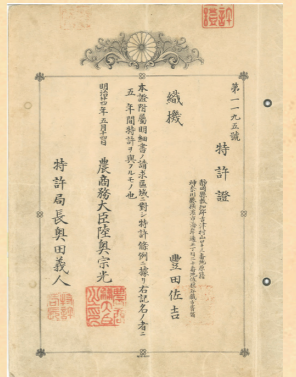 第一一九五號
特許證
豐田佐吉
織機
本證附屬明細書ノ請求區域ニ對シ特許條例ニ據リ右記名ノ者ニ
五年間特許ヲ與フルモノ也
明治廿四年五月十四日
農商務大臣陸奧宗光
特許局長奥田義人